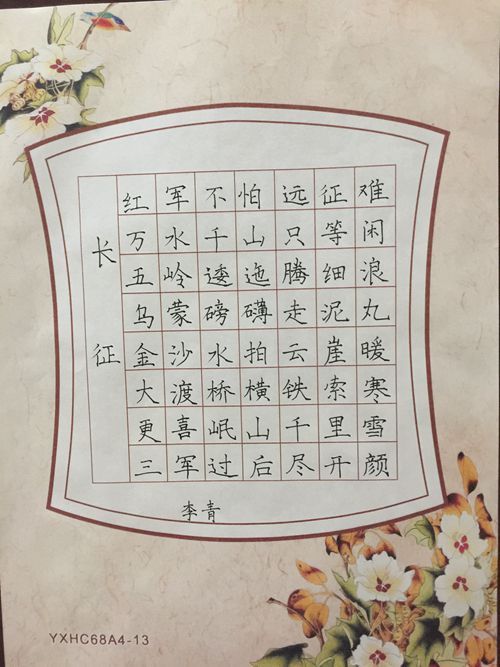 长征
红军不怕远征难
万水千山只等闲
五岭逶迤腾细浪
乌蒙磅礴走泥丸
金沙水拍云崖暖
大渡桥横铁索寒
更喜岷山千里雪
三军过后尽开颜
李青
YXHC68A4-13